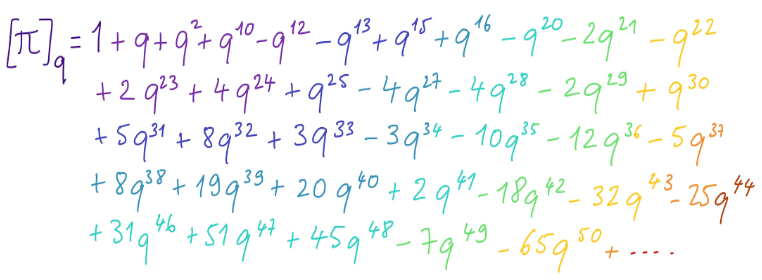 [π]_q = 1 + q + q² + q¹⁰ - q¹² - q¹³ + q¹⁵ + q¹⁶ - q²⁰ - 2q²¹ - q²²
+ 2q²³ + 4q²⁴ + q²⁵ - 4q²⁷ - 4q²⁸ - 2q²⁹ + q³⁰
+ 5q³¹ + 8q³² + 3q³³ - 3q³⁴ - 10q³⁵ - 12q³⁶ - 5q³⁷
+ 8q³⁸ + 19q³⁹ + 20q⁴⁰ + 2q⁴¹ - 18q⁴² - 32q⁴³ - 25q⁴⁴
+ 31q⁴⁶ + 51q⁴⁷ + 45q⁴⁸ - 7q⁴⁹ - 65q⁵⁰ + ....